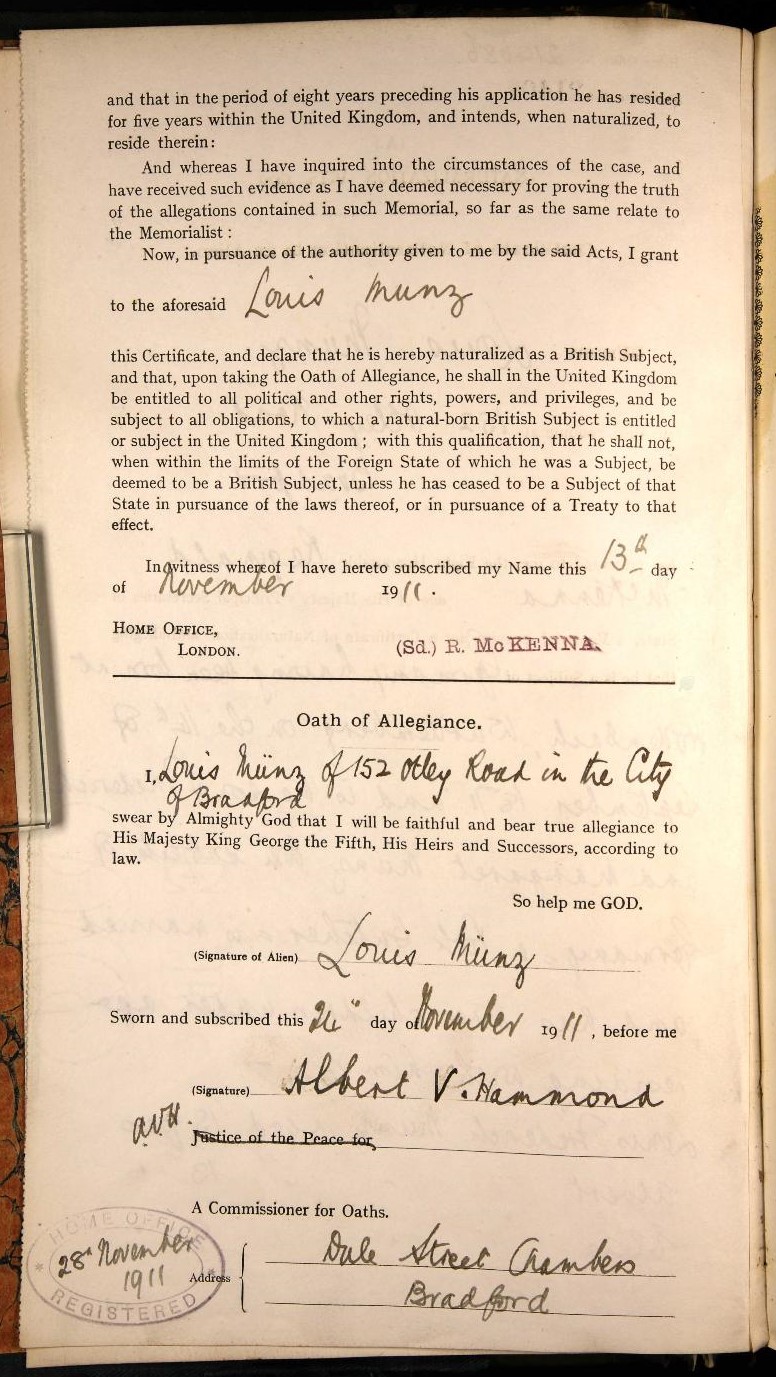 and that in the period of eight years preceding his application he has resided
for five years within the United Kingdom, and intends, when naturalized, to
reside therein:
And whereas I have inquired into the circumstances of the case, and
have received such evidence as I have deemed necessary for proving the truth
of the allegations contained in such Memorial, so far as the same relate to
the Memorialist :
Now, in pursuance of the authority given to me by the said Acts, I grant
to the aforesaid Louis Munz
this Certificate, and declare that he is hereby naturalized as a British Subject,
and that, upon taking the Oath of Allegiance, he shall in the United Kingdom
be entitled to all political and other rights, powers, and privileges, and be
subject to all obligations, to which a natural-born British Subject is entitled
or subject in the United Kingdom ; with this qualification, that he shall not,
when within the limits of the Foreign State of which he was a Subject, be
deemed to be a British Subject, unless he has ceased to be a Subject of that
State in pursuance of the laws thereof, or in pursuance of a Treaty to that
effect.
In witness whereof I have hereto subscribed my Name this 13th day
of November 1911.
HOME OFFICE,
LONDON.
(Sd.) R. McKENNA.
Oath of Allegiance.
I, Louis Münz of 152 Otley Road in the City
of Bradford
swear by Almighty God that I will be faithful and bear true allegiance to
His Majesty King George the Fifth, His Heirs and Successors, according to
law.
So help me GOD.
(Signature of Alien) Louis Münz
Sworn and subscribed this 24" day of November 1911, before me
(Signature) Albert V. Hammond
AVH.
Justice of the Peace for
A Commissioner for Oaths.
Address Dale Street Chambers
Bradford
HOME OFFICE
28th November
1911
REGISTERED